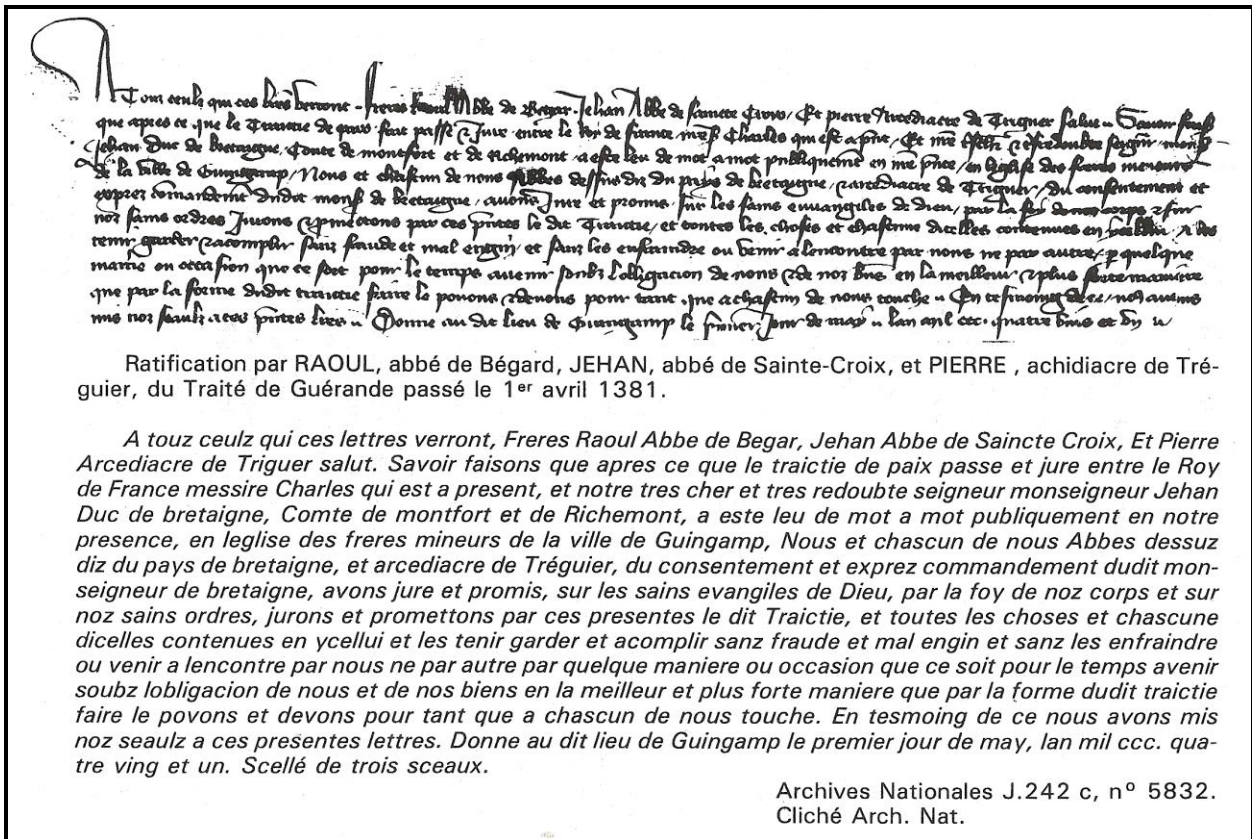 A Touz ceulz qui ces lres verront Freres Raoul Abbe de Begar Jehan Abbe de saincte Croix Et pierre Arcediacre de Triguer salut Savoir faisons
que apres ce que le Traictie de paix fait passe et jure entre le Roy de france mess Charles qui est a pnt Et nre
Jehan Duc de bretaigne Conte de montfort et de Richemont a este leu de mot a mot publiquement en nre pnce en leglise des freres meneurs
de la ville de Guingamp Nous et chascun de nous Abbes dessus diz du pays de bretaigne et arcediacre de Triguer du consentement et
exprez comandement dudit mons de bretaigne avons Jure et promis sur les sains euvangiles de dieu par la foy de noz corps et sur
noz sains ordres Jurons et promettons par ces pntes le dit Traictie et toutes les choses et chascune dicelles contenues en et les
tenir garder et acomplir sanz fraude et mal engin et sanz les enfraindre ou venir a lencontre par nous ne par autre p quelque
maniere ou occasion que ce soit pour le temps avenir soubz lobligacion de nous et de noz biens en la meilleur et plus forte maniere
que par la forme dudit traictie faire le povons et devons pour tant que a chascun de nous touche En tesmoing de ce nous avons
mis noz seaulz a ces pntes lres Donne au dit lieu de Guingamp le premier jour de may lan mil ccc quatre vins et un
Ratification par RAOUL, abbé de Bégard, JEHAN, abbé de Sainte-Croix, et PIERRE , achidiacre de Tré-
guier, du Traité de Guérande passé le 1er avril 1381.
A touz ceulz qui ces lettres verront, Freres Raoul Abbe de Begar, Jehan Abbe de Saincte Croix, Et Pierre
Arcediacre de Triguer salut. Savoir faisons que apres ce que le traictie de paix passe et jure entre le Roy
de France messire Charles qui est a present, et notre tres cher et tres redoubte seigneur monseigneur Jehan
Duc de bretaigne, Comte de montfort et de Richemont, a este leu de mot a mot publiquement en notre
presence, en leglise des freres mineurs de la ville de Guingamp, Nous et chascun de nous Abbes dessuz
diz du pays de bretaigne, et arcediacre de Tréguier, du consentement et exprez commandement dudit mon-
seigneur de bretaigne, avons jure et promis, sur les sains evangiles de Dieu, par la foy de noz corps et sur
noz sains ordres, jurons et promettons par ces presentes le dit Traictie, et toutes les choses et chascune
dicelles contenues en ycellui et les tenir garder et acomplir sanz fraude et mal engin et sanz les enfraindre
ou venir a lencontre par nous ne par autre par quelque maniere ou occasion que ce soit pour le temps avenir
soubz lobligacion de nous et de nos biens en la meilleur et plus forte maniere que par la forme dudit traictie
faire le povons et devons pour tant que a chascun de nous touche. En tesmoing de ce nous avons mis
noz seaulz a ces presentes lettres. Donne au dit lieu de Guingamp le premier jour de may, lan mil ccc. qua-
tre ving et un. Scellé de trois sceaux.
Archives Nationales J.242 c, nº 5832.
Cliché Arch. Nat.